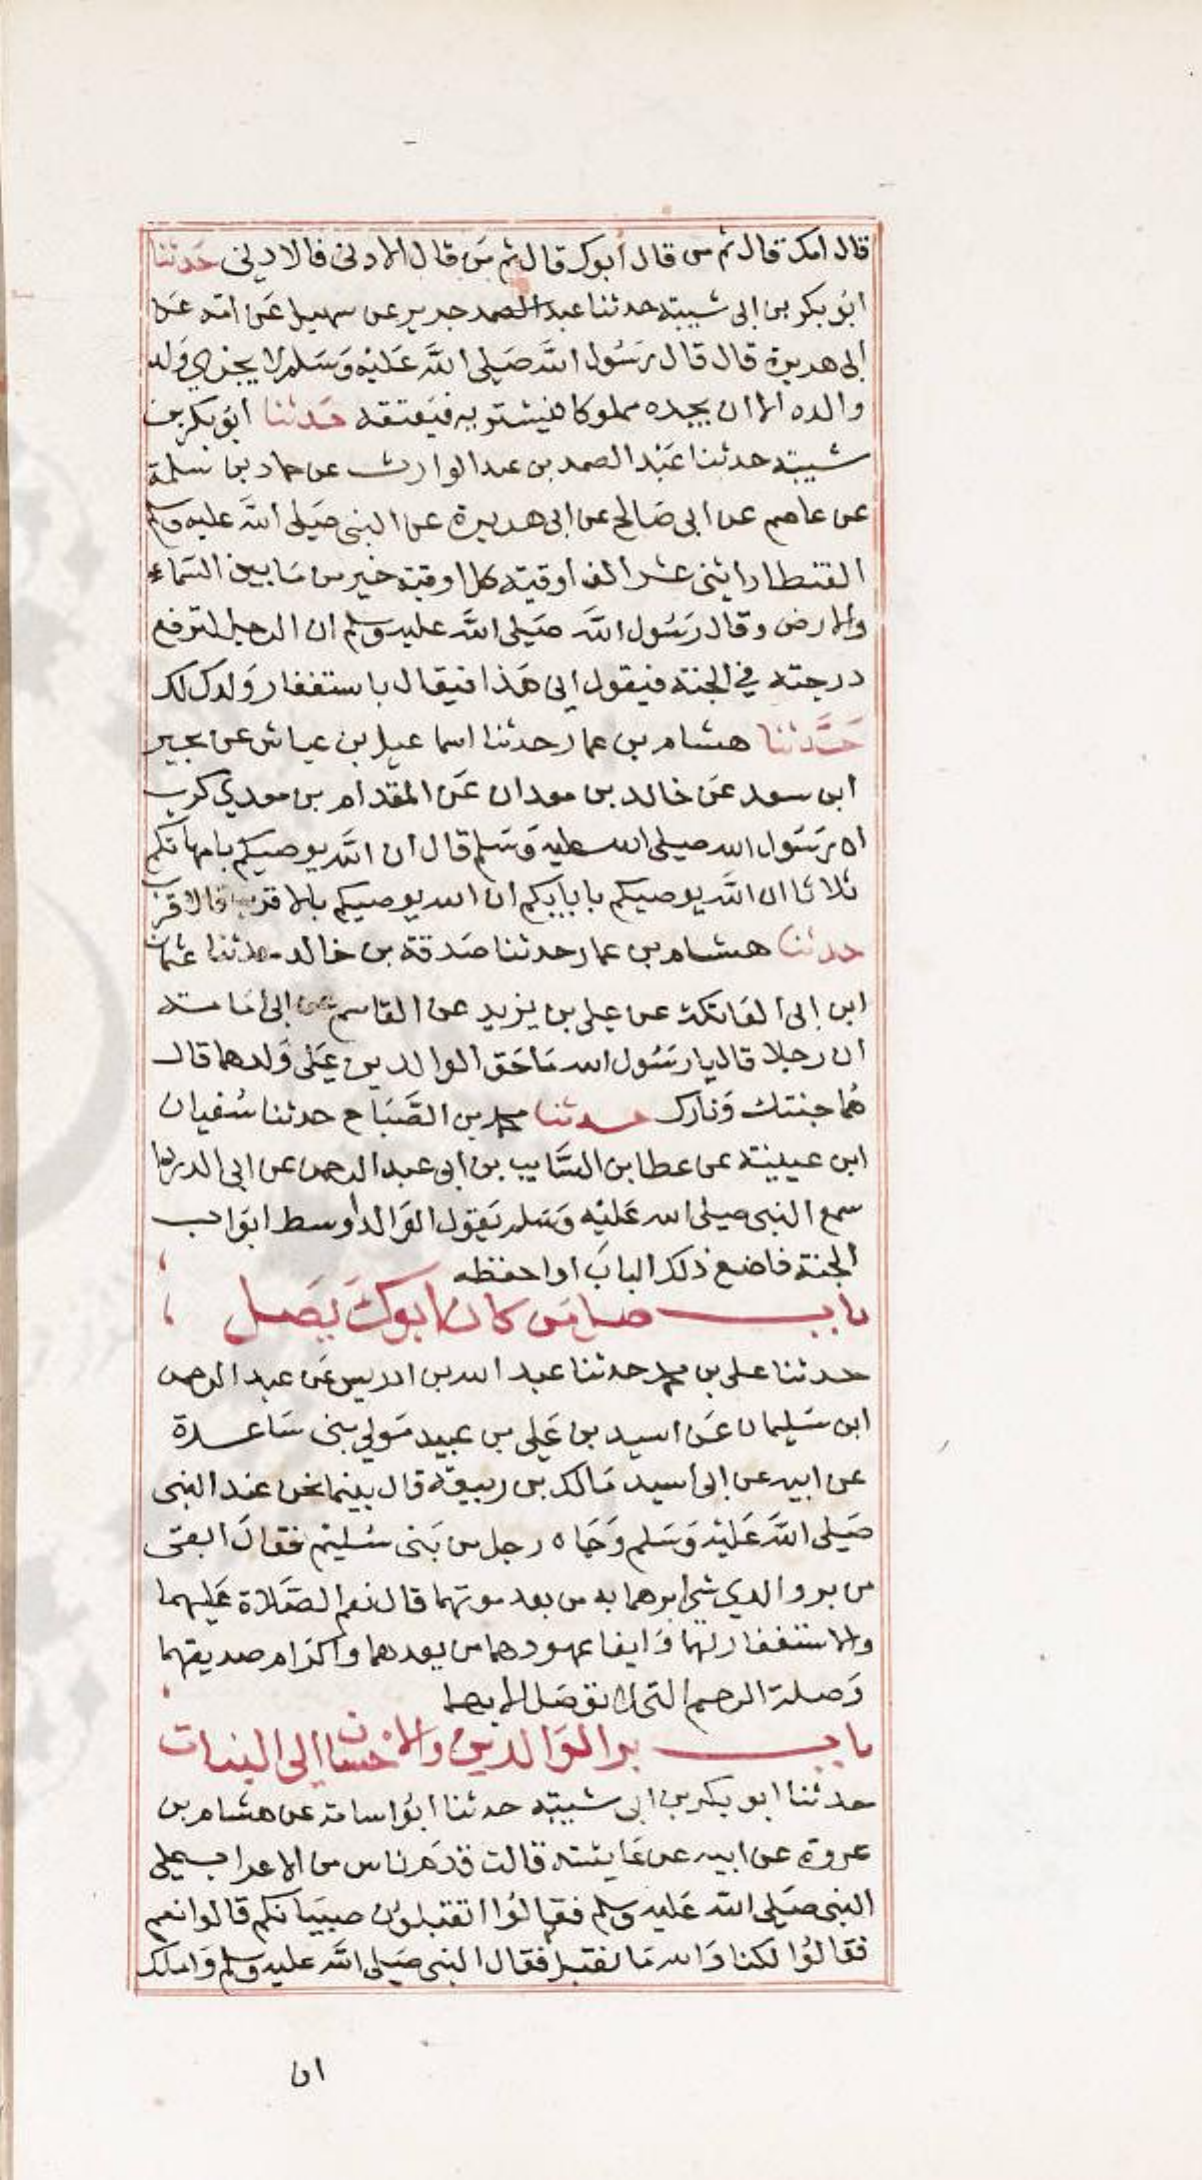 قال امك قال ثم من قال أبوك قال ثم من قال الادنى فالادنى حدثنا
ابو بكر بن ابى شيبة حدثنا عبد الصمد جرير عن سهيل عن امه عن
ابى هريرة قال قال رسول الله صلى الله عليه وسلم لا يجزي ولد
والده الا ان يجده مملوكا فيشتريه فيعتقه حدثنا ابو بكر بن
شيبة حدثنا عبد الصمد بن عبد الوارث عن حماد بن سلمة
عن عاصم عن ابى صالح عن ابى هريرة عن النبى صلى الله عليه وسلم
القنطار اثنى عشر الف أوقية كل اوقية خير من ما بين السماء
والارض وقال رسول الله صلى الله عليه وسلم ان الرجل لترفع
درجته في الجنة فيقول انى هذا فيقال باستغفار ولدك لك
حدثنا هشام بن عمار حدثنا اسماعيل بن عياش عن بحير
ابن سعد عن خالد بن معدان عن المقدام بن معدي كرب
ان رسول الله صلى الله عليه وسلم قال ان الله يوصيكم بامهاتكم
ثلاثا ان الله يوصيكم بابايكم ان الله يوصيكم بالاقرب فالاقرب
حدثنا هشام بن عمار حدثنا صدقة بن خالد حدثنا عثمان
ابن ابى العاتكة عن على بن يزيد عن القاسم عن ابى امامة
ان رجلا قال يا رسول الله ما حق الوالدين على ولدهما قال
هما جنتك ونارك حدثنا محمد بن الصباح حدثنا سفيان
ابن عيينة عن عطا بن السايب بن ابى عبد الرحمن عن ابى الدردا
سمع النبى صلى الله عليه وسلم يقول الوالد أوسط ابواب
الجنة فاضع ذلك الباب او احفظه
باب صل من كان ابوك يصل
حدثنا على بن محمد حدثنا عبد الله بن ادريس عن عبد الرحمن
ابن سليمان عن اسيد بن على بن عبيد مولى بنى ساعدة
عن ابيه عن ابى أسيد مالك بن ربيعة قال بينما نحن عند النبى
صلى الله عليه وسلم وجاه رجل من بنى سليم فقال ابقى
من بر والدي شي ابرهما به من بعد موتهما قال نعم الصلاة عليهما
والاستغفار لهما وايفا عهودهما من بعدهما واكرام صديقهما
وصلة الرحم التى لا توصل الا بهما
باب بر الوالدين والاحسان الى البنات
حدثنا ابو بكر بن ابى شيبة حدثنا ابو اسامة عن هشام بن
عروة عن ابيه عن عايشة قالت قدم ناس من الاعراب على
النبى صلى الله عليه وسلم فقالوا اتقبلون صبيانكم قالوا نعم
فقالوا لكنا والله ما نقبل فقال النبى صلى الله عليه وسلم واملك
ان